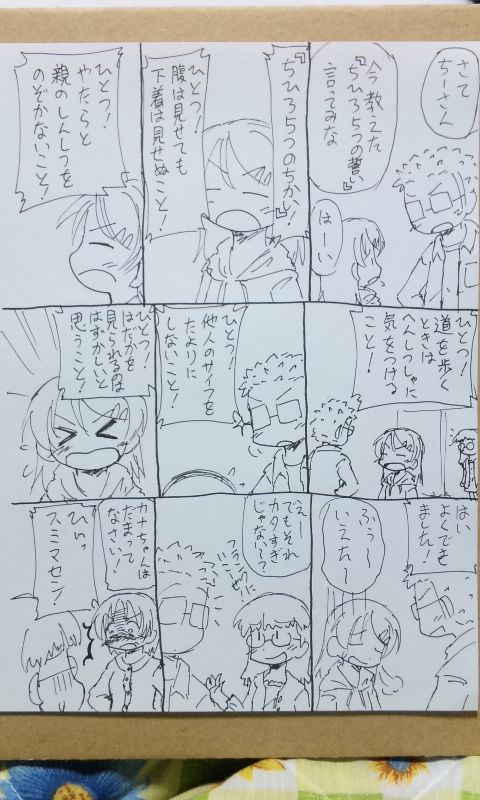 さて
ちーさん
今教えた
『ちひろ5つの誓い』
言ってみな
はーい
『ちひろ5つのちかい！』
ひとつ！
腹は見せても
下着は見せぬこと！
ひとつ！
やたらと
親のしんしつを
のぞかないこと！
ひとつ！
道を歩く
ときは
へんしつしゃに
気をつける
こと！
ひとつ！
他人のサイフを
たよりに
しないこと！
ひとつ！
はだかを
見られるのは
はずかしいと
思うこと！
はい
よくでき
ました！
ふぅ〜
いえた〜
えー
でもそれ
カタすぎ
じゃな〜い？
フランクに
カナちゃんは
だまって
なさい！
ひぃっ
スミマセン！